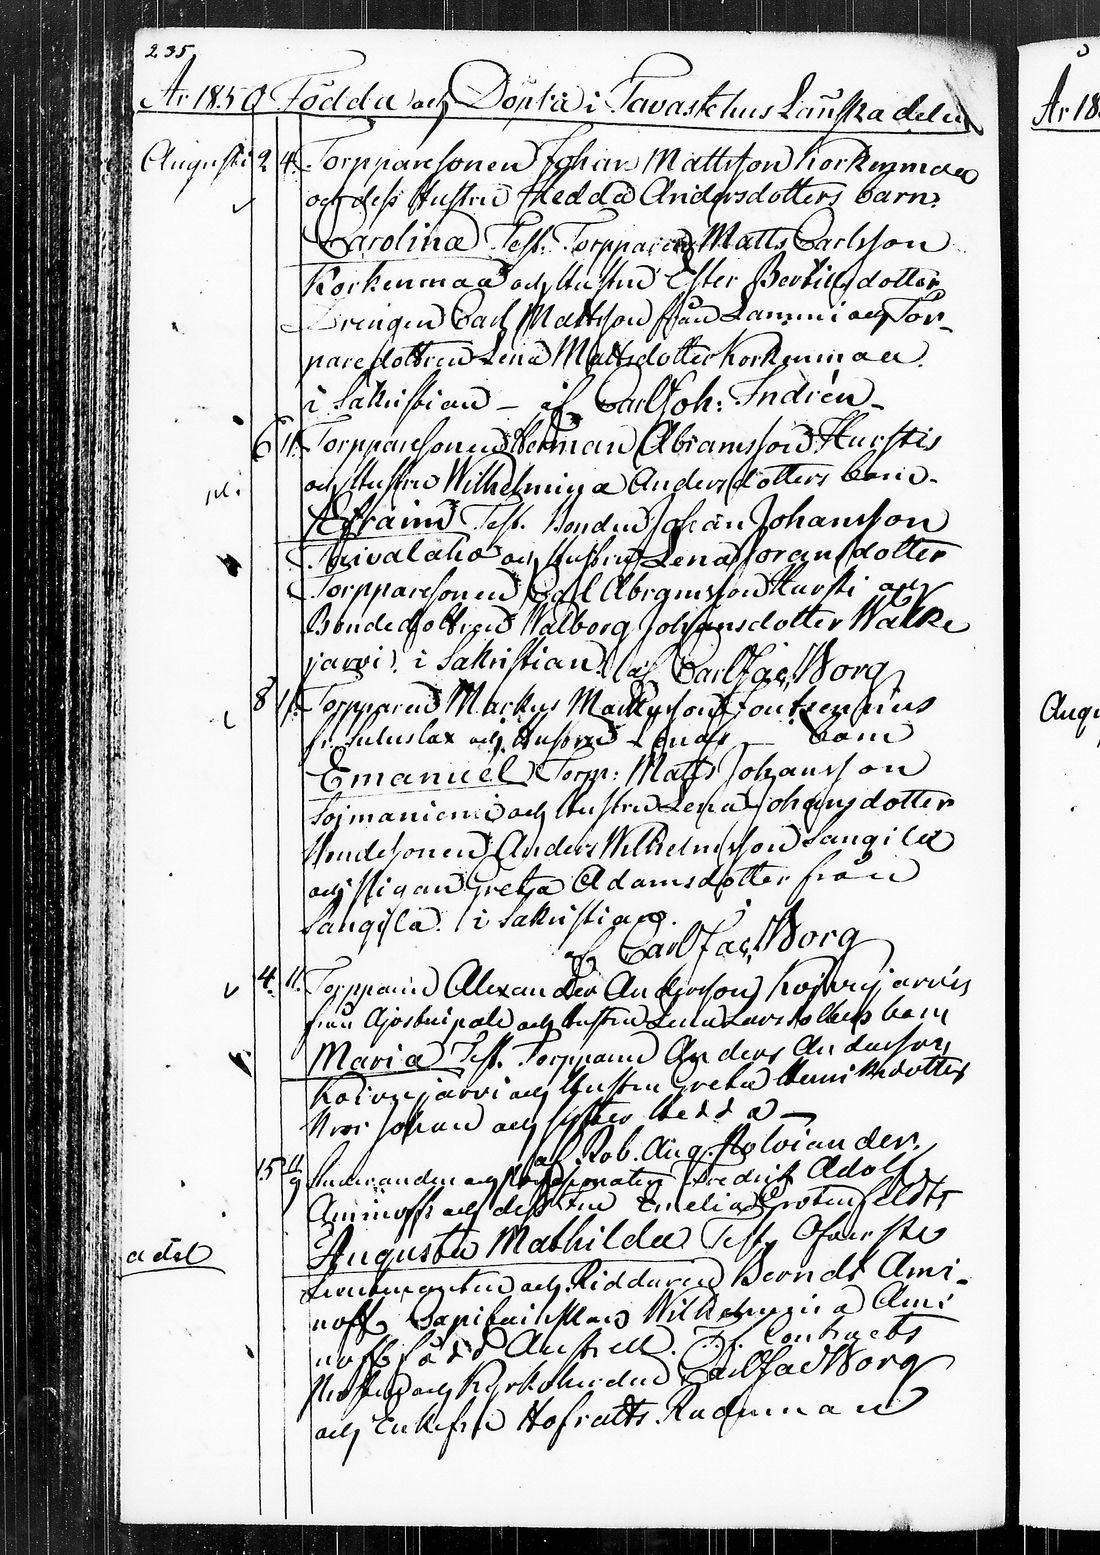 235.
År 1850 Födda och Döpta i Tavastehus Landska delen
År 18
Augusti 2 4. Torpparesonen Johan Mattsson Korkenmaa
och dess Hustru Hedda Andersdotters barn.
Carolina Test. Torpparen Matts Carlsson
Korkenmaa och Hustru Ester Bertilsdotter
Drengen Carl Mattsson från Lammi och Tor-
paredottren Lena Mattsdotter Korkenmaa.
i Sakristian - af Carl Joh: Indrén-
6 11. Torpparesonen Herman Abramsson Hurstis
och Hustru Wilhelmina Andersdotters barn.
Efraim Test. Bonden Johan Johansson
Taivalaho och Hustru Lena Göransdotter
Torpparesonen Carl Abramsson Hursti och
Bondedottren Walborg Johansdotter Walke
jarvi. i Sakristian. af Carl Jac. Borg
8 11. Torpparen Markus Markusson
fr. och Hustrus Lenas barn
Emanuel Torp: Matts Johansson
Sojmaniemi och Hustru Lena Johansdotter
Bondesonen Anders Wilhelmsson Sangila
och Pigan Greta Adamsdotter från
Sangila. i Sakristian.
af Carl Jac. Borg
4. 11. Torpparen Alexander Andersson Koivujarvis
från och Hustru Lena Larsdotters barn
Maria Test. Torpparen Anders Andersson
Koivujarvi och Hustru Greta Henriksdotter
Bror Johan och syster Hedda -
af Rob. Aug. Holviander.
15 11/9 och Fredrik Adolf
Aminoffs och dess Fru Emelia Grotenfeldts
adel
Augusta Mathilda Test. Öfverste
Lieutenanten och Riddaren Berndt Ami-
noff Capitainskan Wilhelmina Ami
noff född Amnell. Contracts
Prosten och Kyrkoherden Carl Jac Borg
och Enkefru Hofrätts Raduman
Augu